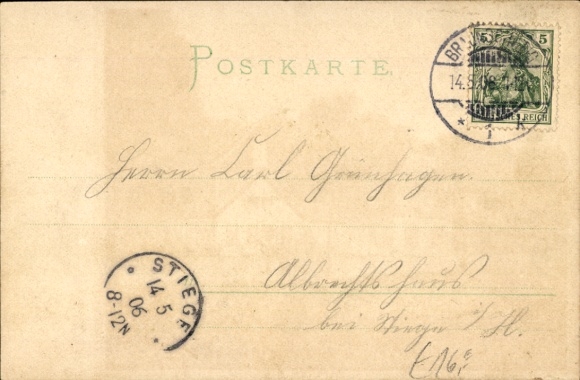 POSTKARTE.
5 5
14.5.06
* 1 k
REICH
Herrn Carl Grünhagen.
STIEGE
14 5
06
8-12N
Albrechtshaus
bei Stiege i/H.